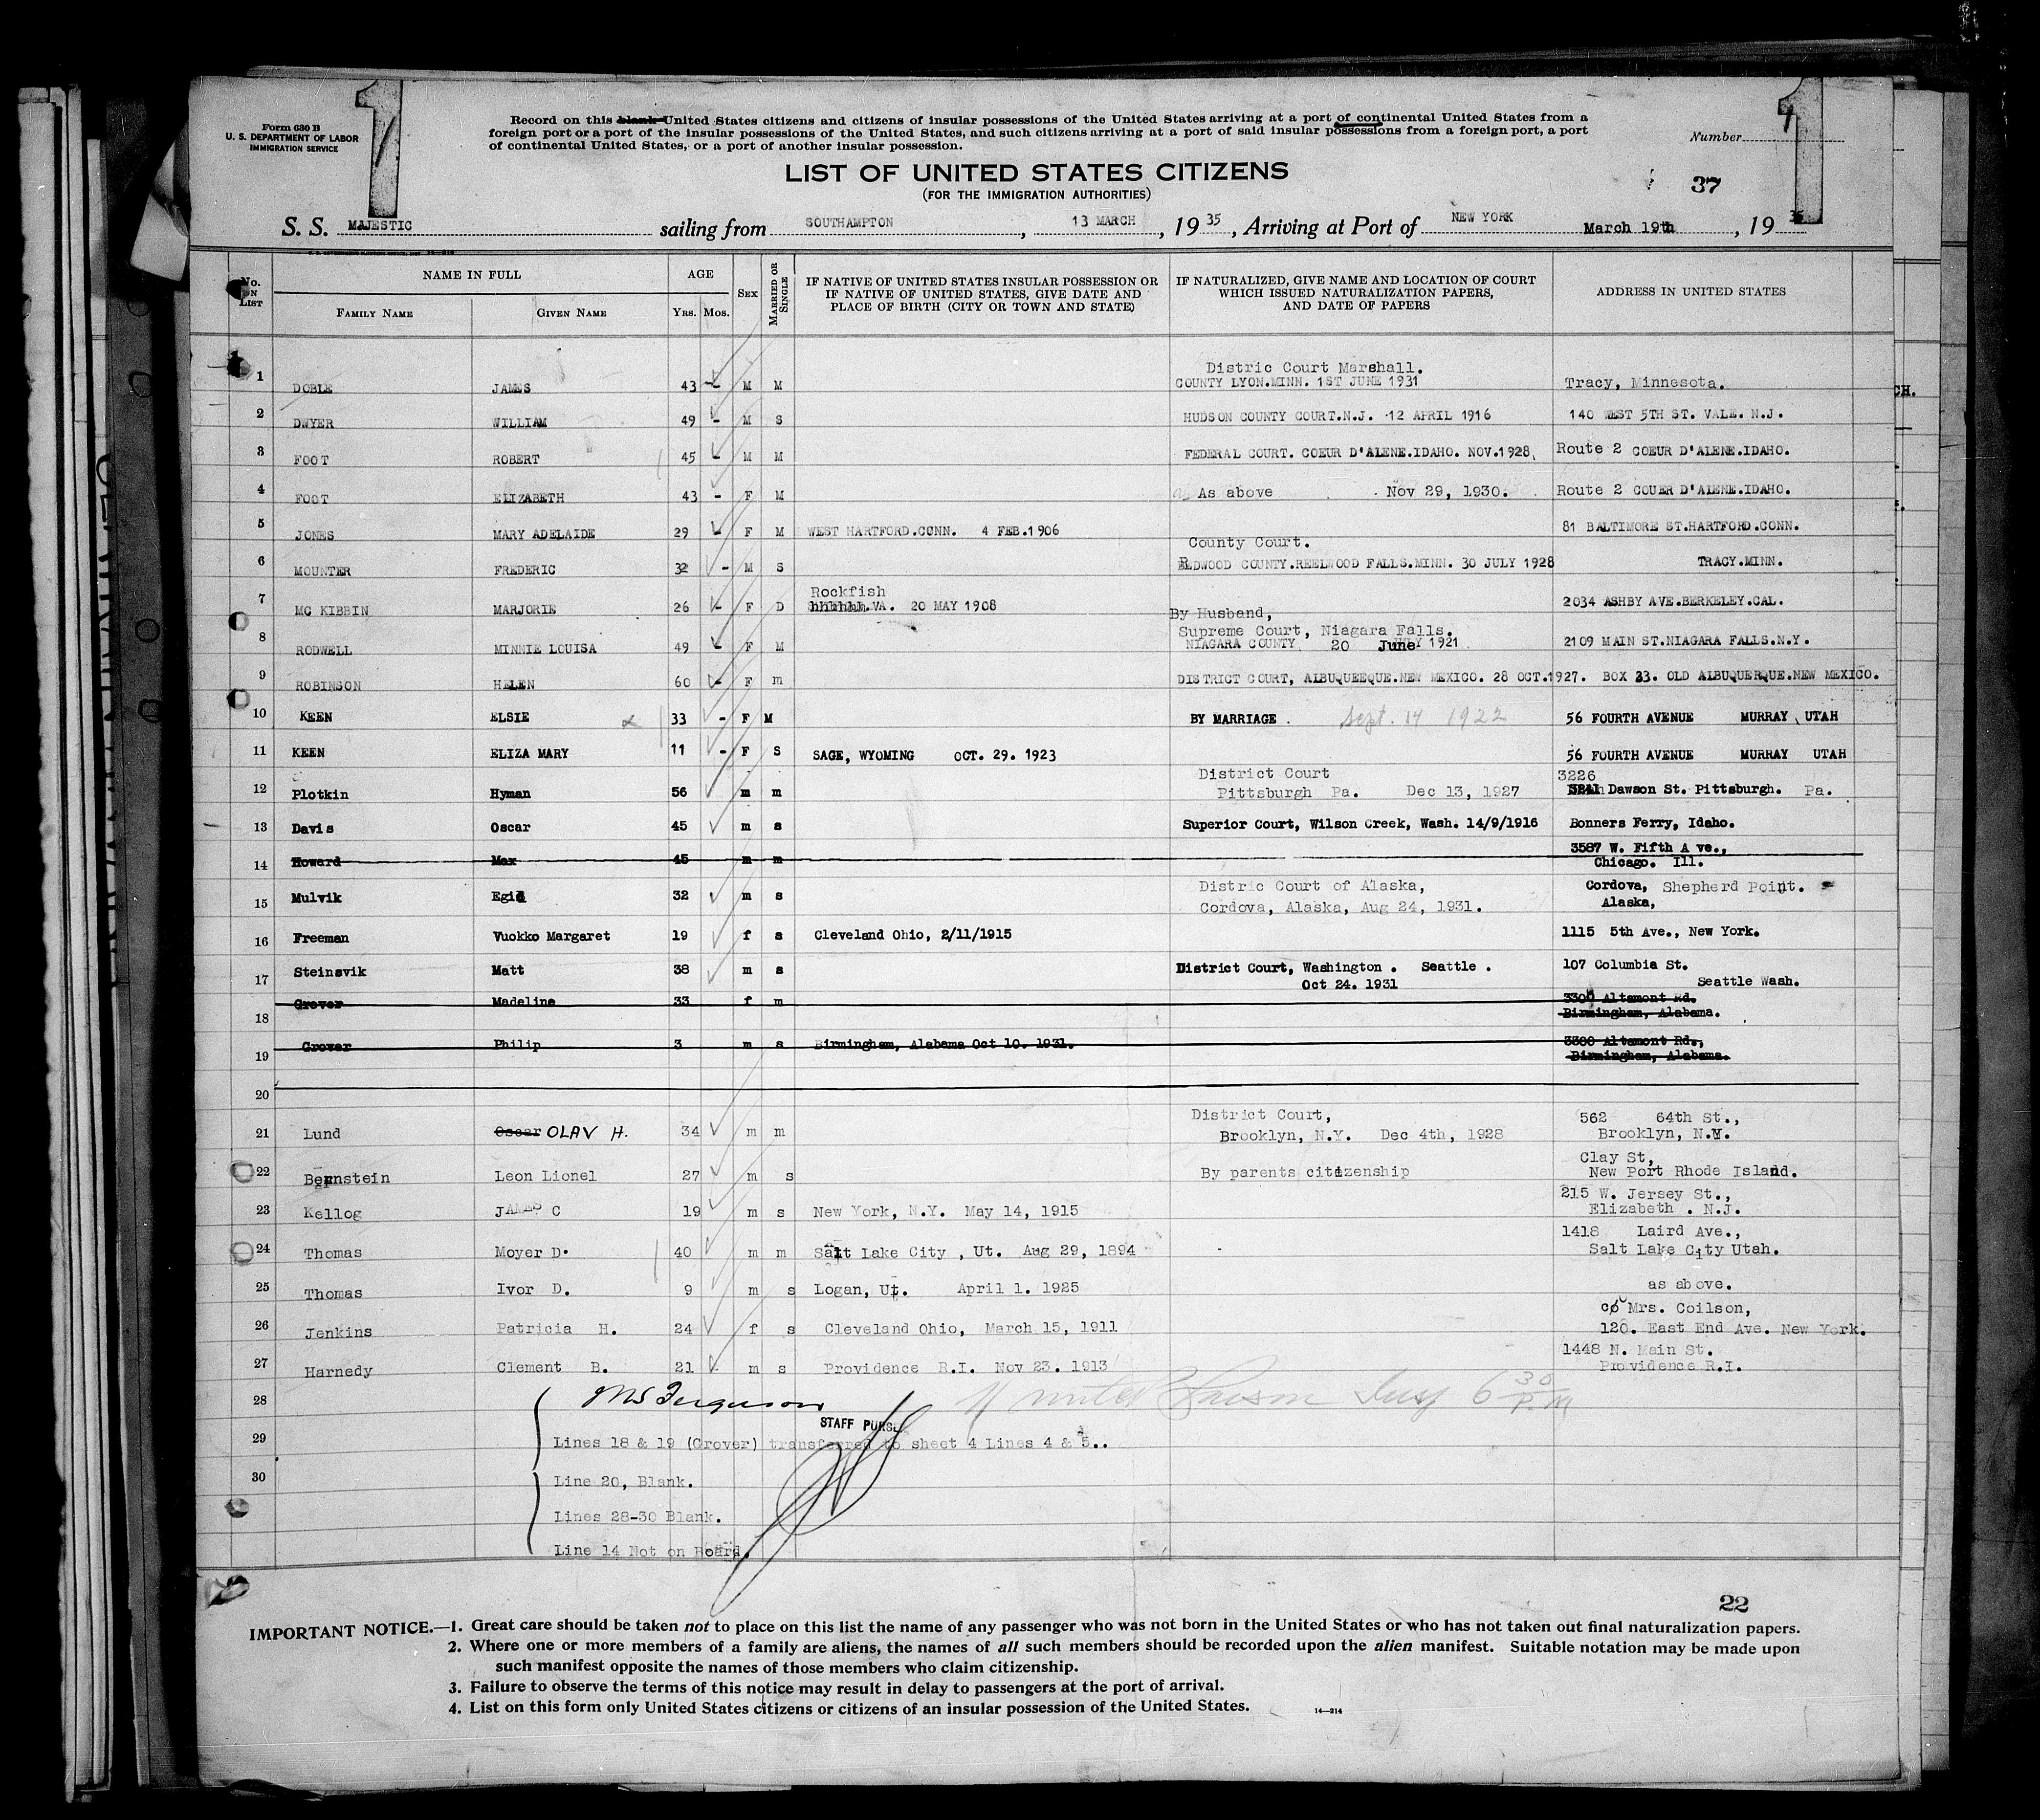 Form 630 B
U. S. DEPARTMENT OF LABOR
IMMIGRATION SERVICE
1
Record on this blank United States citizens and citizens of insular possessions of the United States arriving at a port of continental United States from a
foreign port or a port of the insular possessions of the United States, and such citizens arriving at a port of said insular possessions from a foreign port, a port
of continental United States, or a port of another insular possession.
Number
1
LIST OF UNITED STATES CITIZENS
(FOR THE IMMIGRATION AUTHORITIES)
37
S. S. MAJESTIC sailing from SOUTHAMPTON, 13 MARCH, 19 35, Arriving at Port of NEW YORK March 19th, 19 35
No. ON LIST NAME IN FULL AGE SEX MARRIED OR SINGLE IF NATIVE OF UNITED STATES INSULAR POSSESSION OR IF NATIVE OF UNITED STATES, GIVE DATE AND PLACE OF BIRTH (CITY OR TOWN AND STATE) IF NATURALIZED, GIVE NAME AND LOCATION OF COURT WHICH ISSUED NATURALIZATION PAPERS, AND DATE OF PAPERS ADDRESS IN UNITED STATES
FAMILY NAME GIVEN NAME YRS. MOS.
Distric Court Marshall.
1 DOBLE JAMES 43 - M M COUNTY LYON.MINN. 1ST JUNE 1931 Tracy, Minnesota.
2 DWYER WILLIAM 49 - M S HUDSON COUNTY COURT.N.J. 12 APRIL 1916 140 WEST 5TH ST. VALE. N.J.
3 FOOT ROBERT 45 - M M FEDERAL COURT. COEUR D'ALENE.IDAHO. NOV.1928 Route 2 COEUR D'ALENE.IDAHO.
4 FOOT ELIZABETH 43 - F M As above Nov 29, 1930. Route 2 COUER D'ALENE.IDAHO.
5 JONES MARY ADELAIDE 29 - F M WEST HARTFORD.CONN. 4 FEB.1906 81 BALTIMORE ST.HARTFORD.CONN.
County Court.
6 MOUNTER FREDERIC 32 - M S REDWOOD COUNTY.REELWOOD FALLS.MINN. 30 JULY 1928 TRACY.MINN.
Rockfish
7 MC KIBBIN MARJORIE 26 - F D VA. 20 MAY 1908 2034 ASHBY AVE.BERKELEY.CAL.
By Husband,
Supreme Court, Niagara Falls.
8 RODWELL MINNIE LOUISA 49 - F M NIAGARA COUNTY 20 June 1921 2109 MAIN ST.NIAGARA FALLS.N.Y.
9 ROBINSON HELEN 60 - F m DISTRICT COURT, ALBUQUEEQUE.NEW MEXICO. 28 OCT.1927. BOX 23. OLD ALBUQUERQUE.NEW MEXICO.
10 KEEN ELSIE 33 - F M BY MARRIAGE. Sept. 14 1922 56 FOURTH AVENUE MURRAY, UTAH
11 KEEN ELIZA MARY 11 - F S SAGE, WYOMING OCT. 29. 1923 56 FOURTH AVENUE MURRAY UTAH
District Court 3226
12 Plotkin Hyman 56 m m Pittsburgh Pa. Dec 13, 1927 Dawson St. Pittsburgh. Pa.
13 Davis Oscar 45 m s Superior Court, Wilson Creek, Wash. 14/9/1916 Bonners Ferry, Idaho.
3587 W. Fifth A ve.,
14 Howard Max 45 m m Chicago. Ill.
Distric Court of Alaska, Cordova, Shepherd Point.
15 Mulvik Egid 32 m s Cordova, Alaska, Aug 24, 1931. Alaska,
16 Freeman Vuokko Margaret 19 f s Cleveland Ohio, 2/11/1915 1115 5th Ave., New York.
17 Steinsvik Matt 38 m s District Court, Washington . Seattle . 107 Columbia St.
Oct 24. 1931 Seattle Wash.
18 Grover Madeline 33 f m 3300 Altamont Rd.
Birmingham, Alabama.
19 Grover Philip 3 m s Birmingham, Alabama Oct 10. 1931. 3300 Altamont Rd.,
Birmingham, Alabama.
20
District Court, 562 64th St.,
21 Lund Oscar OLAV H. 34 m m Brooklyn, N.Y. Dec 4th, 1928 Brooklyn, N.Y.
Clay St,
22 Bernstein Leon Lionel 27 m s By parents citizenship New Port Rhode Island.
215 W. Jersey St.,
23 Kellog JAMES C 19 m s New York, N.Y. May 14, 1915 Elizabeth . N.J.
1418 Laird Ave.,
24 Thomas Moyer D. 40 m m Salt Lake City , Ut. Aug 29, 1894 Salt Lake City Utah.
25 Thomas Ivor D. 9 m s Logan, Ut. April 1. 1925 as above.
c/o Mrs. Coilson,
26 Jenkins Patricia H. 24 f s Cleveland Ohio, March 15, 1911 120. East End Ave. New York.
1448 N. Main St.
27 Harnedy Clement B. 21 m s Providence R.I. Nov 23. 1913 Providence R.I.
28 Ferguson
STAFF PURSER
29 Lines 18 & 19 (Grover) transferred to sheet 4 Lines 4 & 5..
30 Line 20, Blank.
Lines 28-30 Blank.
Line 14 Not on Board.
22
IMPORTANT NOTICE.—1. Great care should be taken not to place on this list the name of any passenger who was not born in the United States or who has not taken out final naturalization papers.
2. Where one or more members of a family are aliens, the names of all such members should be recorded upon the alien manifest. Suitable notation may be made upon
such manifest opposite the names of those members who claim citizenship.
3. Failure to observe the terms of this notice may result in delay to passengers at the port of arrival.
4. List on this form only United States citizens or citizens of an insular possession of the United States.
14—214